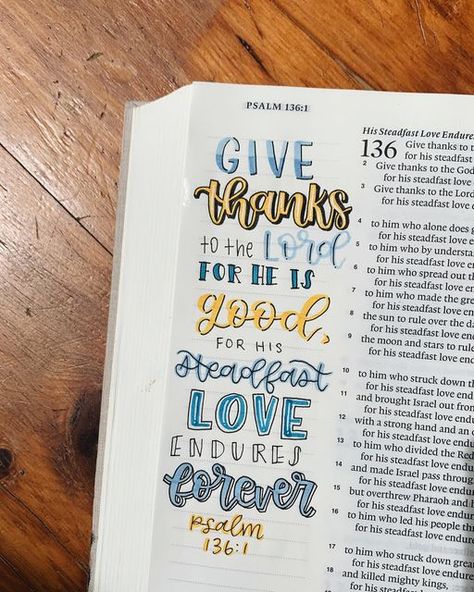 PSALM 136:1
GIVE
thanks
to the Lord
FOR HE IS
good,
FOR HIS
steadfast
LOVE
ENDURES
forever
psalm
136:1
His Steadfast Love Endures
136 Give thanks to t
for his steadf
2 Give thanks to the God
for his steadfast love
3 Give thanks to the Lord
for his steadfast love
4 to him who alone does g
for his steadfast love
5 to him who by understa
for his steadfast love en
6 to him who spread out th
for his steadfast love en
7 to him who made the gre
for his steadfast love en
8 the sun to rule over the d
for his steadfast love e
9 the moon and stars to rule
for his steadfast love en
10 to him who struck down t
for his steadfast love en
11 and brought Israel out fron
for his steadfast love en
12 with a strong hand and an o
for his steadfast love end
13 to him who divided the Red
for his steadfast love en
14 and made Israel pass throug
for his steadfast love end
15 but overthrew Pharaoh and h
for his steadfast love endu
16 to him who led his people thr
for his steadfast love endu
17 to him who struck down great
for his steadfast love endu
18 and killed mighty kings,
for his steadfast love endure